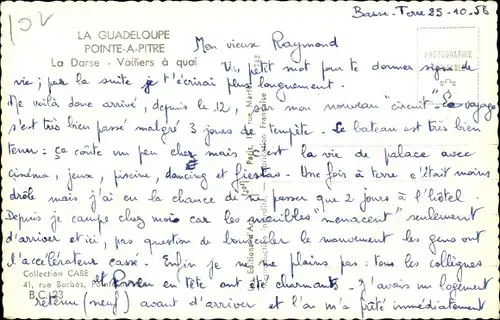 102
LA GUADELOUPE
POINTE-A-PITRE
La Darse - Voiliers à quai
Basse-Terre 25-10-56
PHOTOGRAPHIE
Mon vieux Raymond
Un petit mot pour te donner signe de
vie ; par la suite je t'écrirai plus longuement.
Me voilà donc arrivé, depuis le 12, sur mon nouveau "circuit". Le voyage
s'est très bien passé malgré 3 jours de tempête. Le bateau est très bien
tenu : ça coûte un peu cher mais c'est la vie de palace avec
cinéma, jeux, piscine, dancing et fiestas. Une fois à terre c'était moins
drôle mais j'ai eu la chance de ne passer que 2 jours à l'hôtel.
Depuis je campe chez moi car les meubles "menacent" seulement
d'arriver et ici, pas question de bousculer le mouvement les gens ont
l'accélérateur cassé. Enfin je ne me plains pas : tous les collègues
et en tête ont été charmants. J'avais un logement
retenu (neuf) avant d'arriver et l'on m'a prêté immédiatement
Collection CABE
41, rue Barbès,
B.C. 23